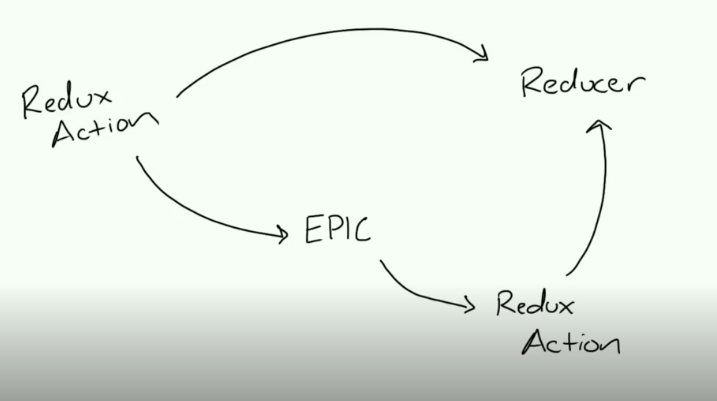 Redux
Action
Reducer
EPIC
Redux
Action